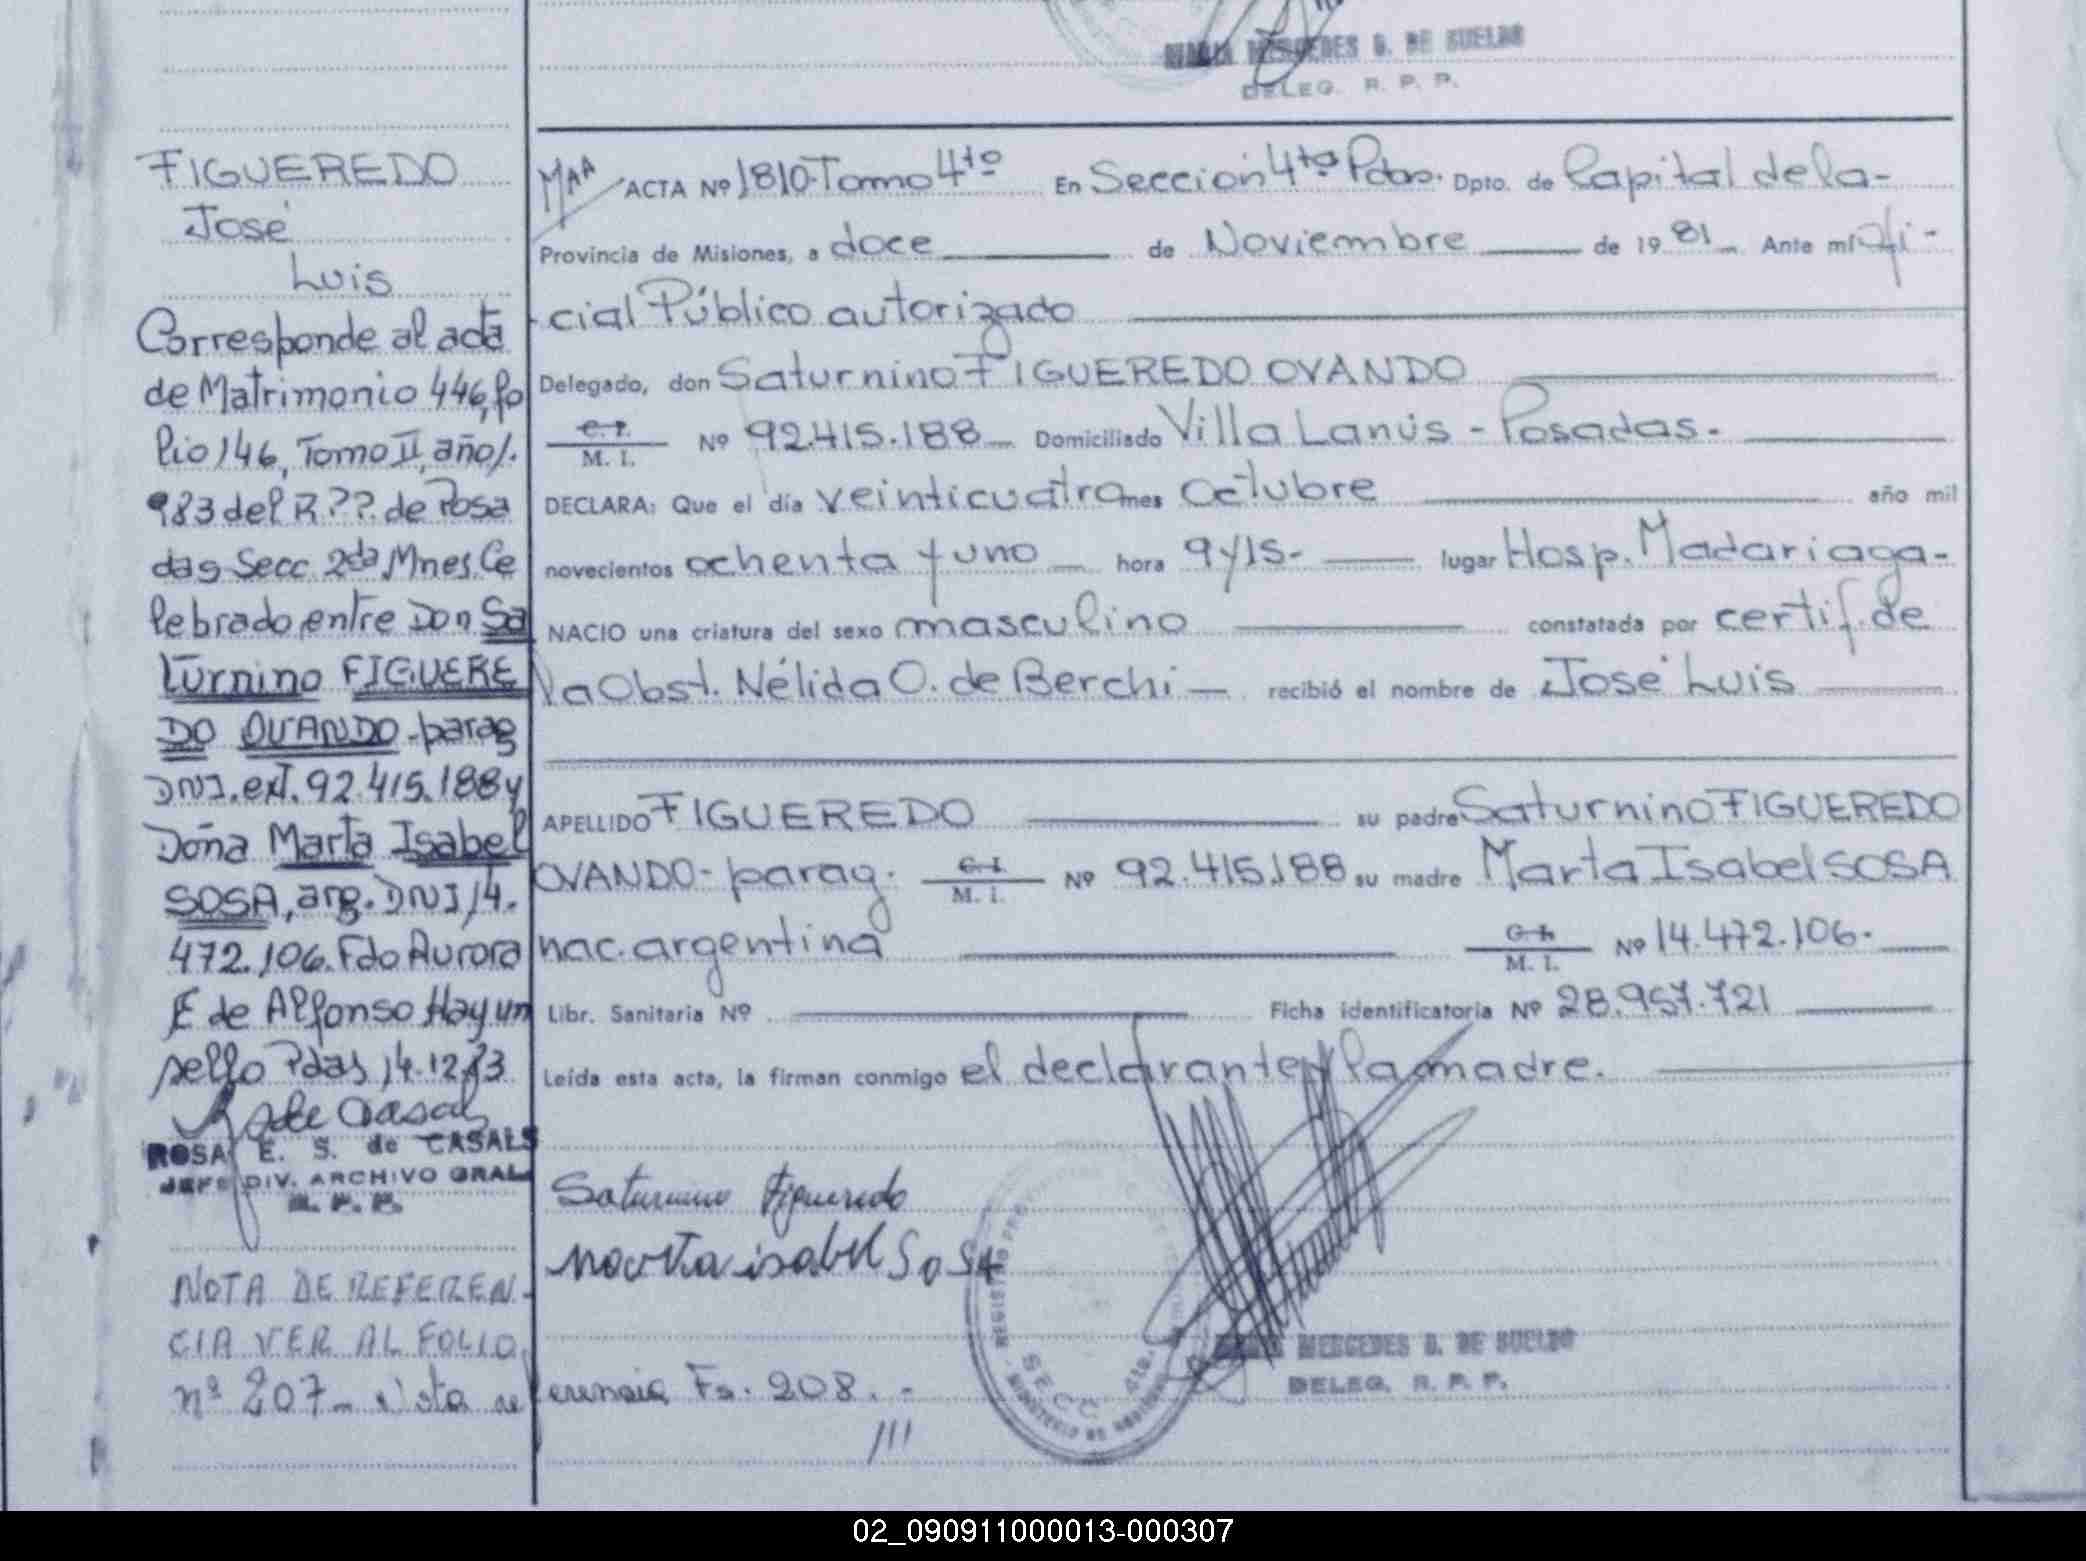 MARIA MERCEDES G. DE SUELDO
DELEG. R. P. P.
FIGUEREDO
José
Luis
Corresponde al acta
de Matrimonio 446, fo
lio 146, Tomo II, año 1.
983 del R.P.P. de Posa
das Secc 2da Mnes. Ce
lebrado entre Don Sa
turnino FIGUERE
DO OVANDO-parag
DNI. ext. 92.415.188 y
Doña Marta Isabel
SOSA, arg. DNI 14.
472.106. Fdo Aurora
E de Alfonso Hay un
sello Pdas 14.12.83
ROSA E. S. de CASALS
JEFE DIV. ARCHIVO GRAL
R. P. P.
NOTA DE REFEREN-
CIA VER AL FOLIO
nº 207
ACTA Nº 1810-Tomo 4to En Sección 4ta Pdas. Dpto. de Capital de la-
Provincia de Misiones, a doce de Noviembre de 19 81 Ante mí Ofi-
cial Público autorizado
Delegado, don Saturnino FIGUEREDO OVANDO
M. I. Nº 92.415.188 Domiciliado Villa Lanús - Posadas.
DECLARA: Que el día veinticuatro mes Octubre año mil
novecientos ochenta y uno hora 9 y 15- lugar Hosp. Madariaga-
NACIO una criatura del sexo masculino constatada por certif. de
la Obst. Nélida O. de Berchi recibió el nombre de José Luis
APELLIDO FIGUEREDO su padre Saturnino FIGUEREDO
OVANDO- parag. C. I. M. I. Nº 92.415.188 su madre Marta Isabel SOSA
nac. argentina M. I. Nº 14.472.106.
Libr. Sanitaria Nº Ficha identificatoria Nº 28.957.721
Leída esta acta, la firman conmigo el declarante y la madre.
Saturnino Figueredo
Marta isabel SoSA
Fs. 208. -
MERCEDES G. DE SUELDO
DELEG. R. P. P.
SECC. 4ta.
02_090911000013-000307